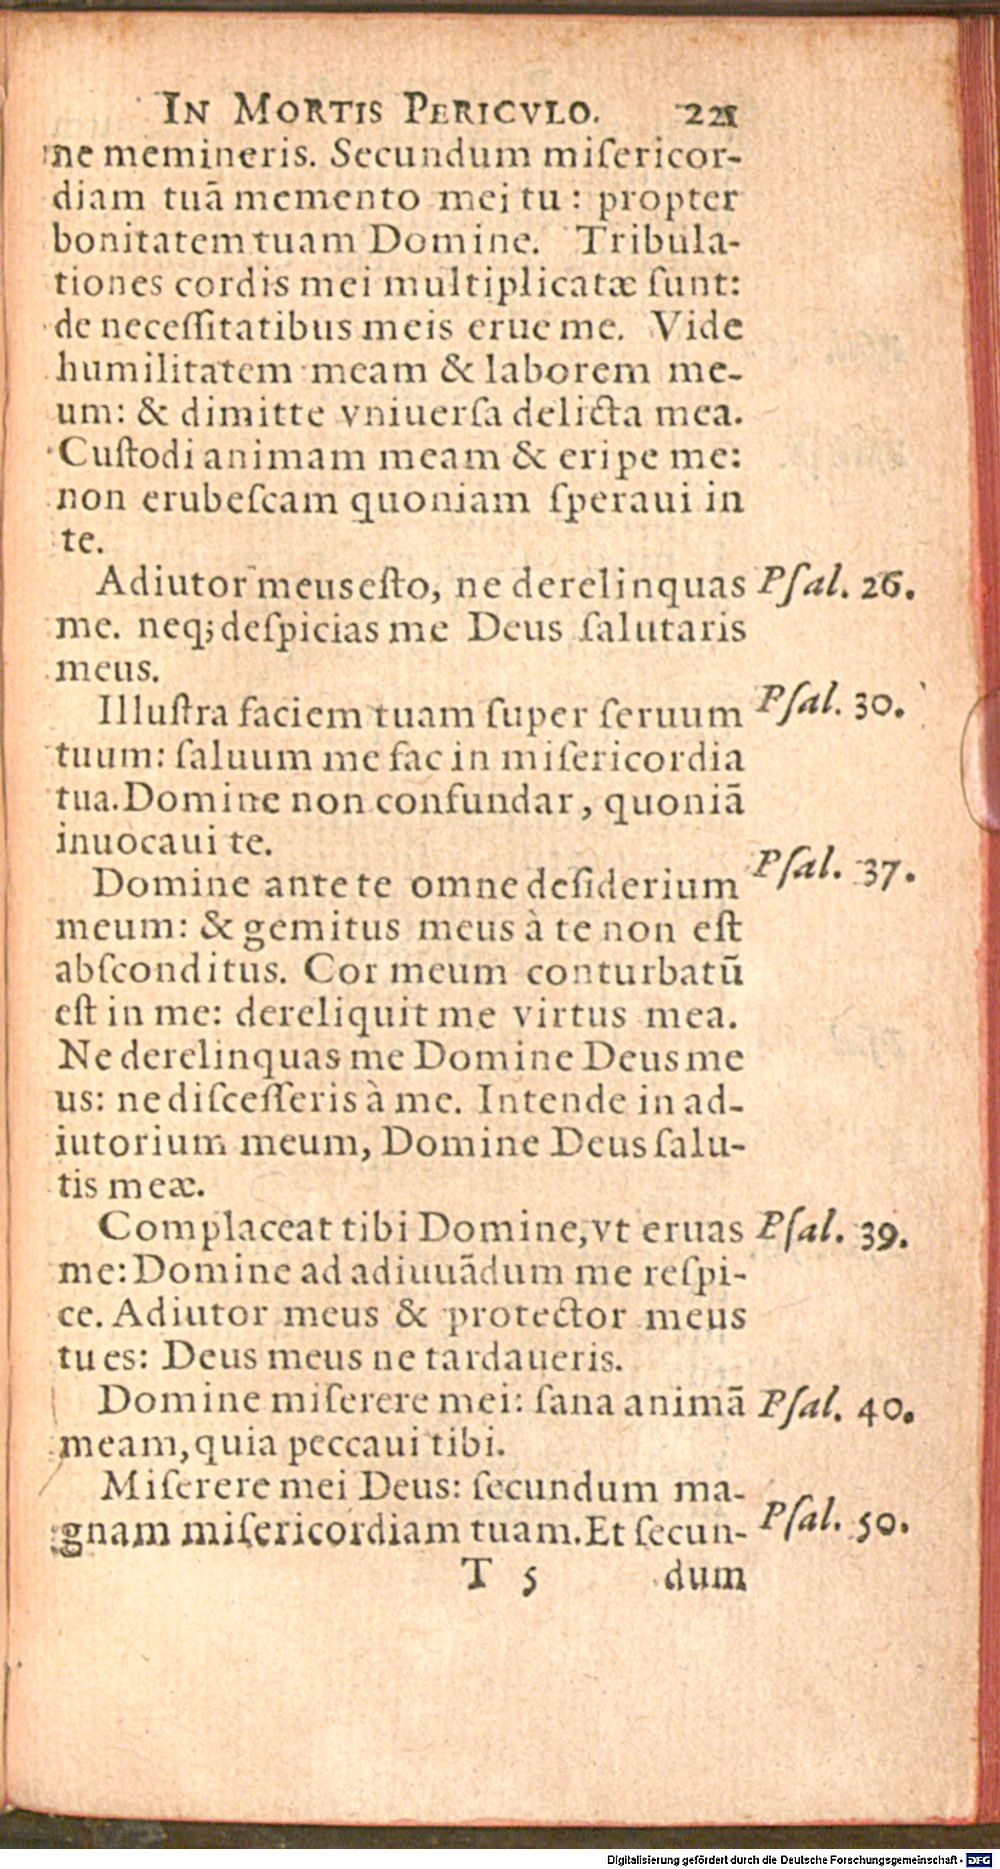 IN MORTIS PERICVLO. 221
ne memineris. Secundum miſericor-
diam tuā memento mei tu: propter
bonitatem tuam Domine. Tribula-
tiones cordis mei multiplicatæ ſunt:
de neceſſitatibus meis erue me. Vide
humilitatem meam & laborem me-
um: & dimitte vniuerſa delicta mea.
Cuſtodi animam meam & eripe me:
non erubeſcam quoniam ſperaui in
te.
Adiutor meus eſto, ne derelinquas Pſal. 26.
me. neq; deſpicias me Deus ſalutaris
meus.
Illuſtra faciem tuam ſuper ſeruum Pſal. 30.
tuum: ſaluum me fac in miſericordia
tua. Domine non confundar, quoniā
inuocaui te.
Domine ante te omne deſiderium Pſal. 37.
meum: & gemitus meus à te non eſt
abſconditus. Cor meum conturbatū
eſt in me: dereliquit me virtus mea.
Ne derelinquas me Domine Deus me
us: ne diſceſſeris à me. Intende in ad-
iutorium meum, Domine Deus ſalu-
tis meæ.
Complaceat tibi Domine, vt eruas Pſal. 39.
me: Domine ad adiuuādum me reſpi-
ce. Adiutor meus & protector meus
tu es: Deus meus ne tardaueris.
Domine miſerere mei: ſana animā Pſal. 40.
meam, quia peccaui tibi.
Miſerere mei Deus: ſecundum ma-
gnam miſericordiam tuam. Et ſecun- Pſal. 50.
T 5 dum
Digitalisierung gefördert durch die Deutsche Forschungsgemeinschaft - DFG